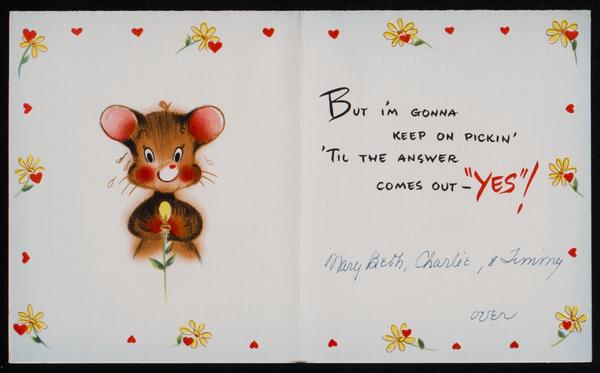 But i'm gonna
keep on pickin'
'Til the answer
comes out - "YES"!
Mary Beth, Charlie, & Timmy
over